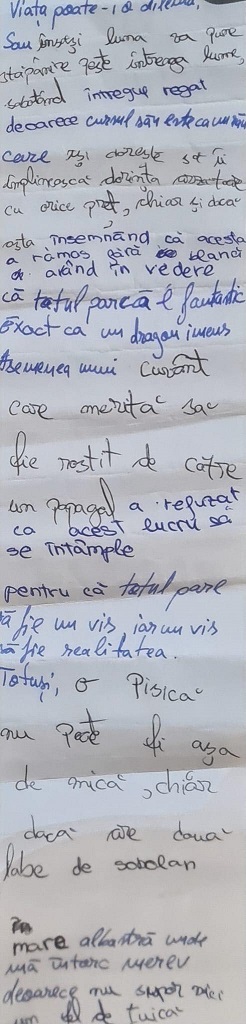 Viața poate-i o dilemă,
Sau însăși luna va pune
stăpânire peste întreaga lume,
sabotând întregul regat
deoarece cursul său este ca un
care își dorește să îi
împlinească dorința
cu orice preț, chiar și dacă
asta însemnând că acesta
a rămas fără blană
având în vedere
că totul parcă e fantastic
Exact ca un dragon imens
Asemenea unui Cuvânt
care merită sa
fie rostit de către
un papagal a refuzat
ca acest lucru să
se întâmple
pentru că totul pare
să fie un vis, iar un vis
să fie realitatea.
Totuși, o Pisică
nu poate fi așa
de mică, chiar
dacă are două
labe de sobolan
În
mare albastră unde
mă întorc mereu
deoarece nu suport nici
un fel de țuică